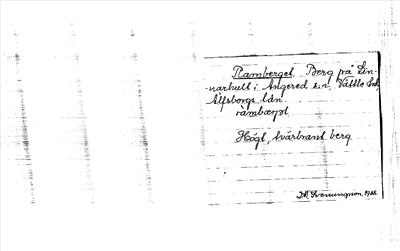 Ramberget. Berg på Lin-
narhult i Angered s:n. Vättle hd.
Älfsborgs län.
rámbærjət
Högt, tvärbrant berg.
J.M. Svenungsson, 1916.